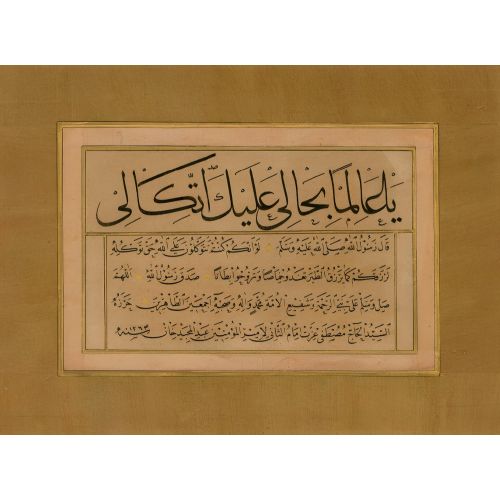 يا عالما بحالي عليك اتكالي
قال رسول الله صلى الله عليه وسلم لو انكم كنتم توكلون على الله حق توكله
لرزقكم كما يرزق الطير تغدو خماصا وتروح بطانا صدق رسول الله اللهم
صل وسلم على نبي الرحمة وشفيع الامة محمد واله وصحبه اجمعين الطاهرين حرره
السيد الحاج مصطفى عزت الامام الثاني لامير المؤمنين عبد المجيد خان سنه ١٢٦٣